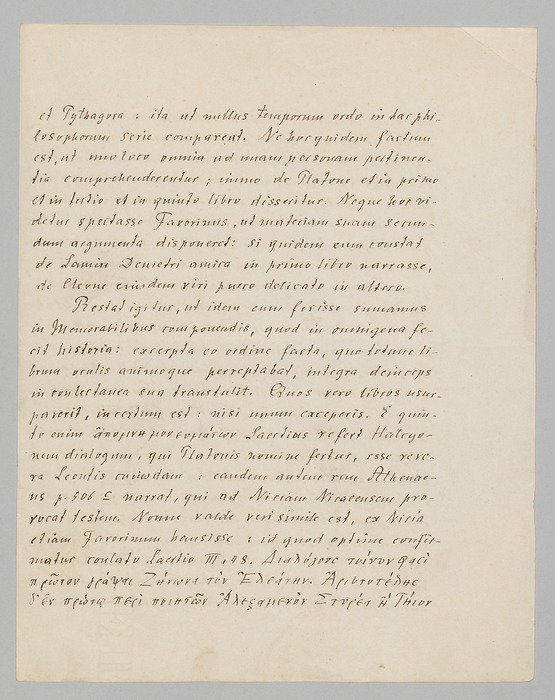 et Pythagora : ita ut nullus temporum ordo in hac phi-
losophorum serie compareat. Ne hoc quidem factum
est, ut uno loco omnia ad unam personam pertinen-
tia comprehenderentur ; immo de Platone et in primo
et in tertio et in quinto libro disseritur. Neque hoc vi-
detur spectasse Favorinus, ut materiam suam secun-
dum argumenta disponeret : si quidem eum constat
de Lamia Demetri amica in primo libro narrasse,
de Cleone eiusdem viri puero delicato in altero.
Restat igitur, ut idem eum fecisse sumamus
in Memorabilibus componendis, quod in omnigena fe-
cit historia : excerpta eo ordine facta, quo totum li-
brum oculis animoque perreptabat, integra deinceps
in conlectanea sua transtulit. Quos vero libros usur-
paverit, incertum est : nisi unum exceperis. E quin-
to enim ἀπομνημονευμάτων Laertius refert Halcyo-
nem dialogum, qui Platonis nomine fertur, esse reve-
ra Leontis cuiusdam : eandem autem rem Athenae-
us p. 506 E narrat, qui ad Niciam Nicaeensem pro-
vocat testem. Nonne valde veri simile est, ex Nicia
etiam Favorinum hausisse : id quod optime confir-
matur conlato Laertio III, 48. Διαλόγους τοίνυν φασὶ
πρῶτον γράψαι Ζήνωνα τὸν Ἐλεάτην. Ἀριστοτέλης
δ' ἐν πρώτῳ περὶ ποιητῶν Ἀλεξαμενὸν Στυρέα ἢ Τήιον